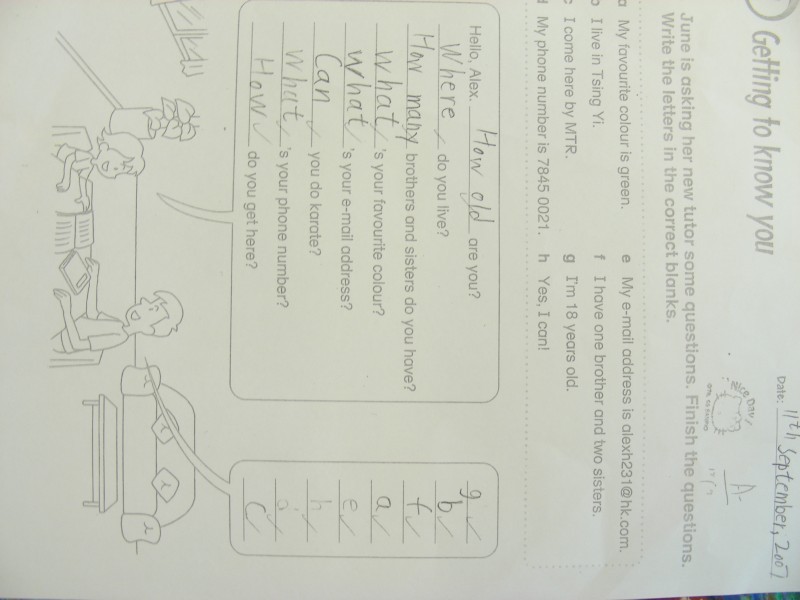 Getting to know you
Date: 11th September, 2007
A-
June is asking her new tutor some questions. Finish the questions.
Write the letters in the correct blanks.
a My favourite colour is green.
b I live in Tsing Yi.
c I come here by MTR.
d My phone number is 7845 0021.
e My e-mail address is alexh231@hk.com.
f I have one brother and two sisters.
g I'm 18 years old.
h Yes, I can!
Hello, Alex. How old are you?
Where do you live?
How many brothers and sisters do you have?
What 's your favourite colour?
What 's your e-mail address?
Can you do karate?
What 's your phone number?
How do you get here?
g
b
f
a
e
h
d
c